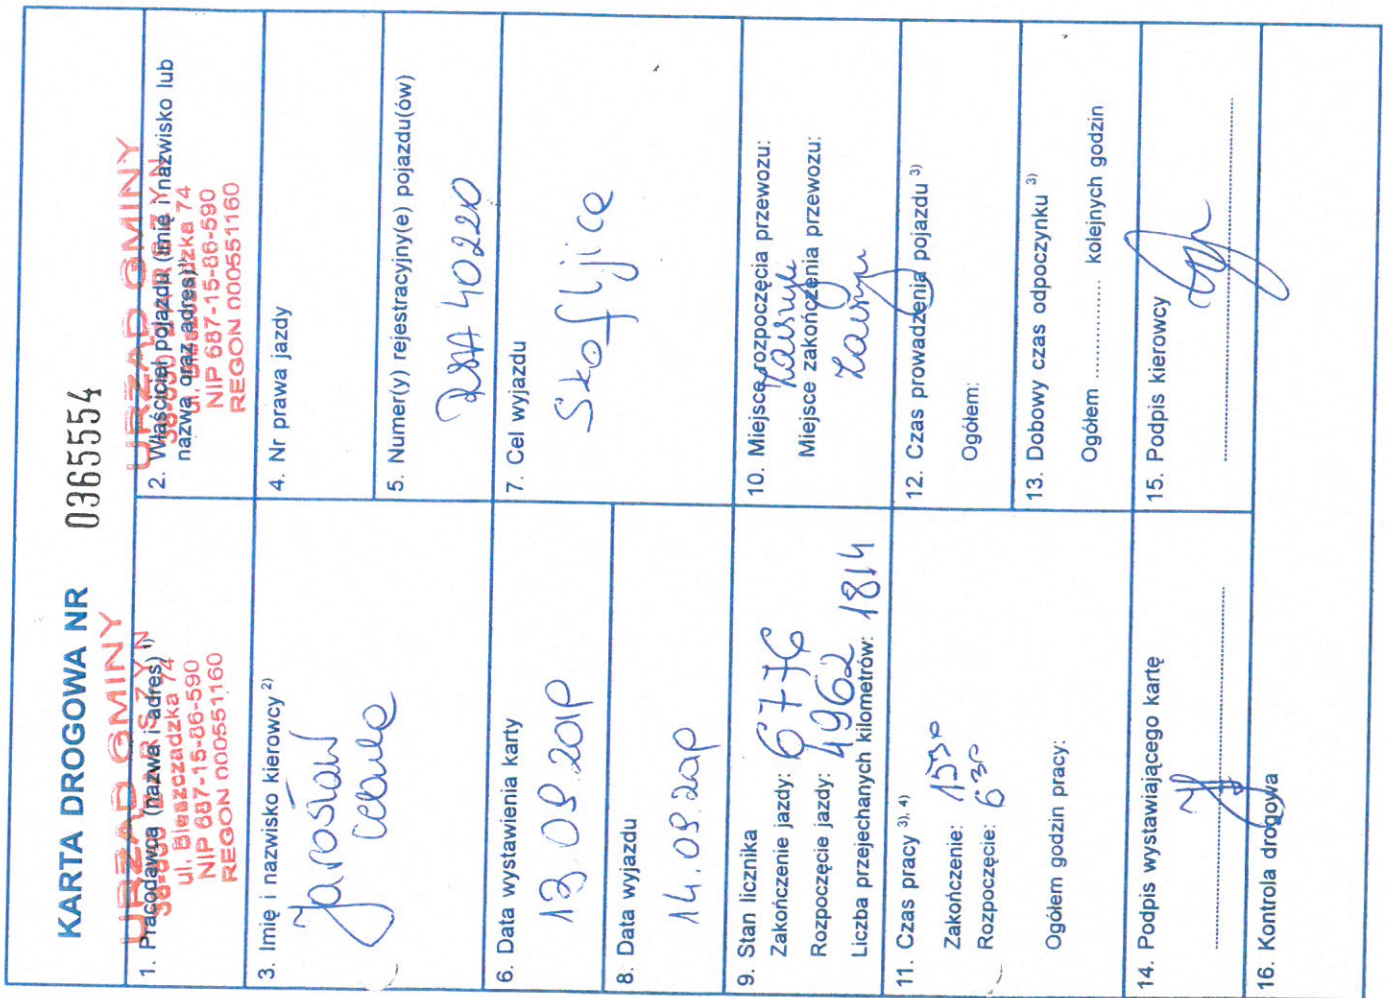 KARTA DROGOWA NR 0365554
URZĄD GMINY
1. Pracodawca (nazwa i adres) 1)
ul. Bieszczadzka 74
NIP 687-15-86-590
REGON 000551160
URZĄD GMINY
2. Właściciel pojazdu (imię i nazwisko lub
nazwa oraz adres) 1)
ul. Bieszczadzka 74
NIP 687-15-86-590
REGON 000551160
3. Imię i nazwisko kierowcy 2)
Jarosław
4. Nr prawa jazdy
5. Numer(y) rejestracyjny(e) pojazdu(ów)
RSA 40220
6. Data wystawienia karty
13.09.2019
7. Cel wyjazdu
Skofljica
8. Data wyjazdu
14.09.2019
9. Stan licznika
Zakończenie jazdy: 6776
Rozpoczęcie jazdy: 4962
Liczba przejechanych kilometrów: 1814
10. Miejsce rozpoczęcia przewozu:
Zarszyn
Miejsce zakończenia przewozu:
Zarszyn
11. Czas pracy 3), 4)
Zakończenie: 15 30
Rozpoczęcie: 6 30
Ogółem godzin pracy:
12. Czas prowadzenia pojazdu 3)
Ogółem:
13. Dobowy czas odpoczynku 3)
Ogółem ............ kolejnych godzin
14. Podpis wystawiającego kartę
15. Podpis kierowcy
16. Kontrola drogowa